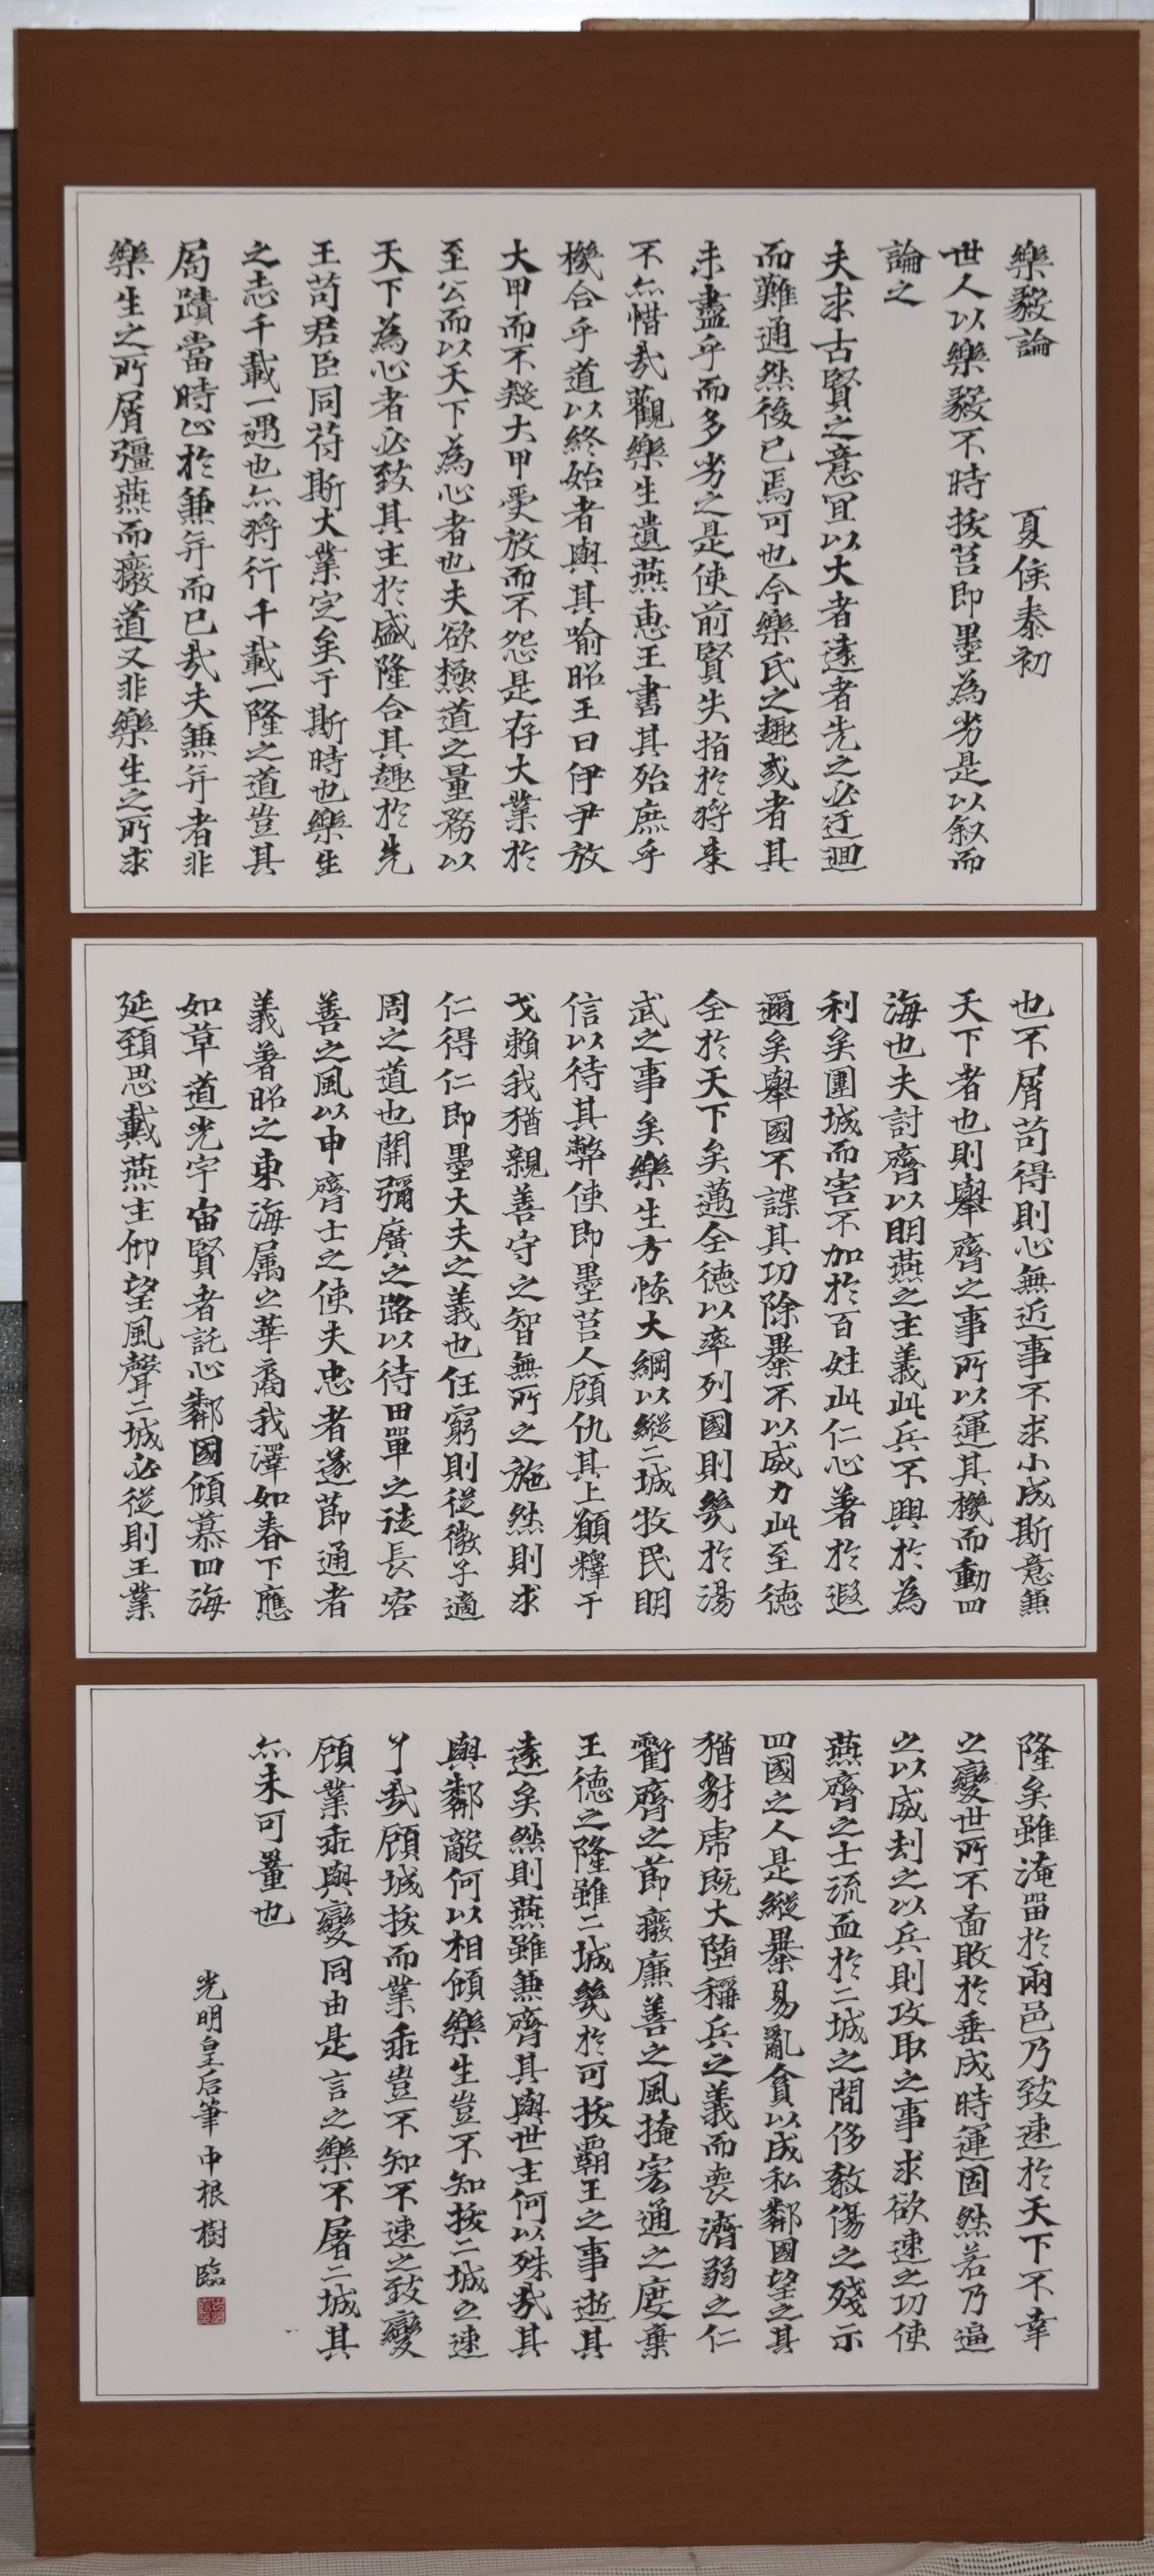 樂毅論　夏侯泰初
世人以樂毅不時拔莒即墨為劣是以叙而
論之
夫求古賢之意宜以大者遠者先之必迂迴
而難通然後已焉可也今樂氏之趣或者其
未盡乎而多劣之是使前賢失指於将来
不亦惜哉觀樂生遺燕惠王書其殆庶乎
機合乎道以終始者與其喻昭王曰伊尹放
大甲而不疑大甲受放而不怨是存大業於
至公而以天下為心者也夫欲極道之量務以
天下為心者必致其主於盛隆合其趣於先
王苟君臣同苻斯大業定矣于斯時也樂生
之志千載一遇也亦将行千載一隆之道豈其
局蹟當時止於兼并而已哉夫兼并者非
樂生之所屑彊燕而癈道又非樂生之所求
也不屑苟得則心無近事不求小成斯意兼
天下者也則舉齊之事所以運其機而動四
海也夫討齊以明燕之主義此兵不興於為
利矣圍城而害不加於百姓此仁心著於遐
邇矣舉國不謀其功除暴不以威力此至德
全於天下矣邁全德以率列國則幾於湯
武之事矣樂生方恢大綱以縱二城牧民明
信以待其弊使即墨莒人顧仇其上願釋干
戈賴我猶親善守之智無所之施然則求
仁得仁即墨大夫之義也任窮則從微子適
周之道也開彌廣之路以待田單之徒長容
善之風以申齊士之使夫忠者遂節通者
義著昭之東海属之華裔我澤如春下應
如草道光宇宙賢者託心鄰國傾慕四海
延頚思戴燕主仰望風聲二城必從則王業
隆矣雖淹留於兩邑乃致速於天下不幸
之變世所不啚敗於垂成時運固然若乃逼
之以威刦之以兵則攻取之事求欲速之功使
燕齊之士流血於二城之間侈敎傷之殘示
四國之人是縱暴易亂貪以成私鄰國望之其
猶豺虎既大墮稱兵之義而喪濟弱之仁
虧齊之節癈廉善之風掩宏通之度棄
王德之隆雖二城幾於可拔霸王之事逝其
遠矣然則燕雖兼齊其與世主何以殊哉其
與鄰敵何以相傾樂生豈不知拔二城之速
了哉顧城拔而業乖豈不知不速之致變
顧業乖與變同由是言之樂不屠二城其
亦未可量也
光明皇后筆中根樹臨